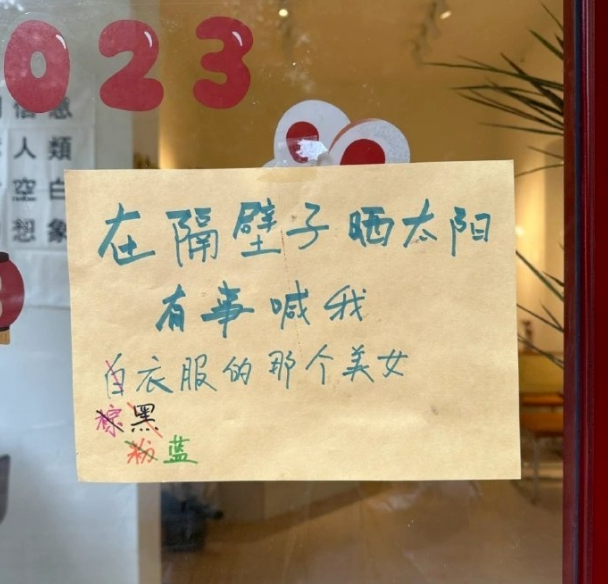 2023
信息
人類
空白
想象
在隔壁子晒太阳
有事喊我
白衣服的那个美女
棕黑
粉蓝